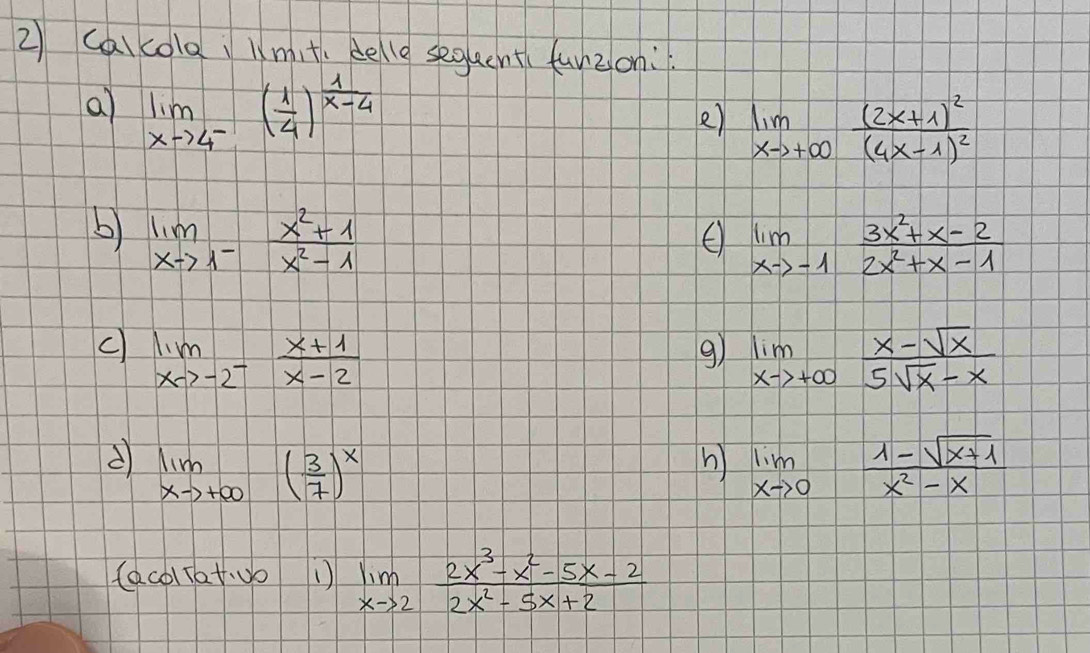 2) Calcola i limiti delle seguenti funzioni:
a) lim x->4⁻ (1/4)^(1/(x-4))
e) lim x->+∞ (2x+1)²/(4x-1)²
b) lim x->1⁻ (x²+1)/(x²-1)
f) lim x->-1 (3x²+x-2)/(2x²+x-1)
c) lim x->-2⁻ (x+1)/(x-2)
g) lim x->+∞ (x-√x)/(5√x-x)
d) lim x->+∞ (3/7)^x
h) lim x->0 (1-√(x+1))/(x²-x)
facoltativo i) lim x->2 (2x³-x²-5x-2)/(2x²-5x+2)